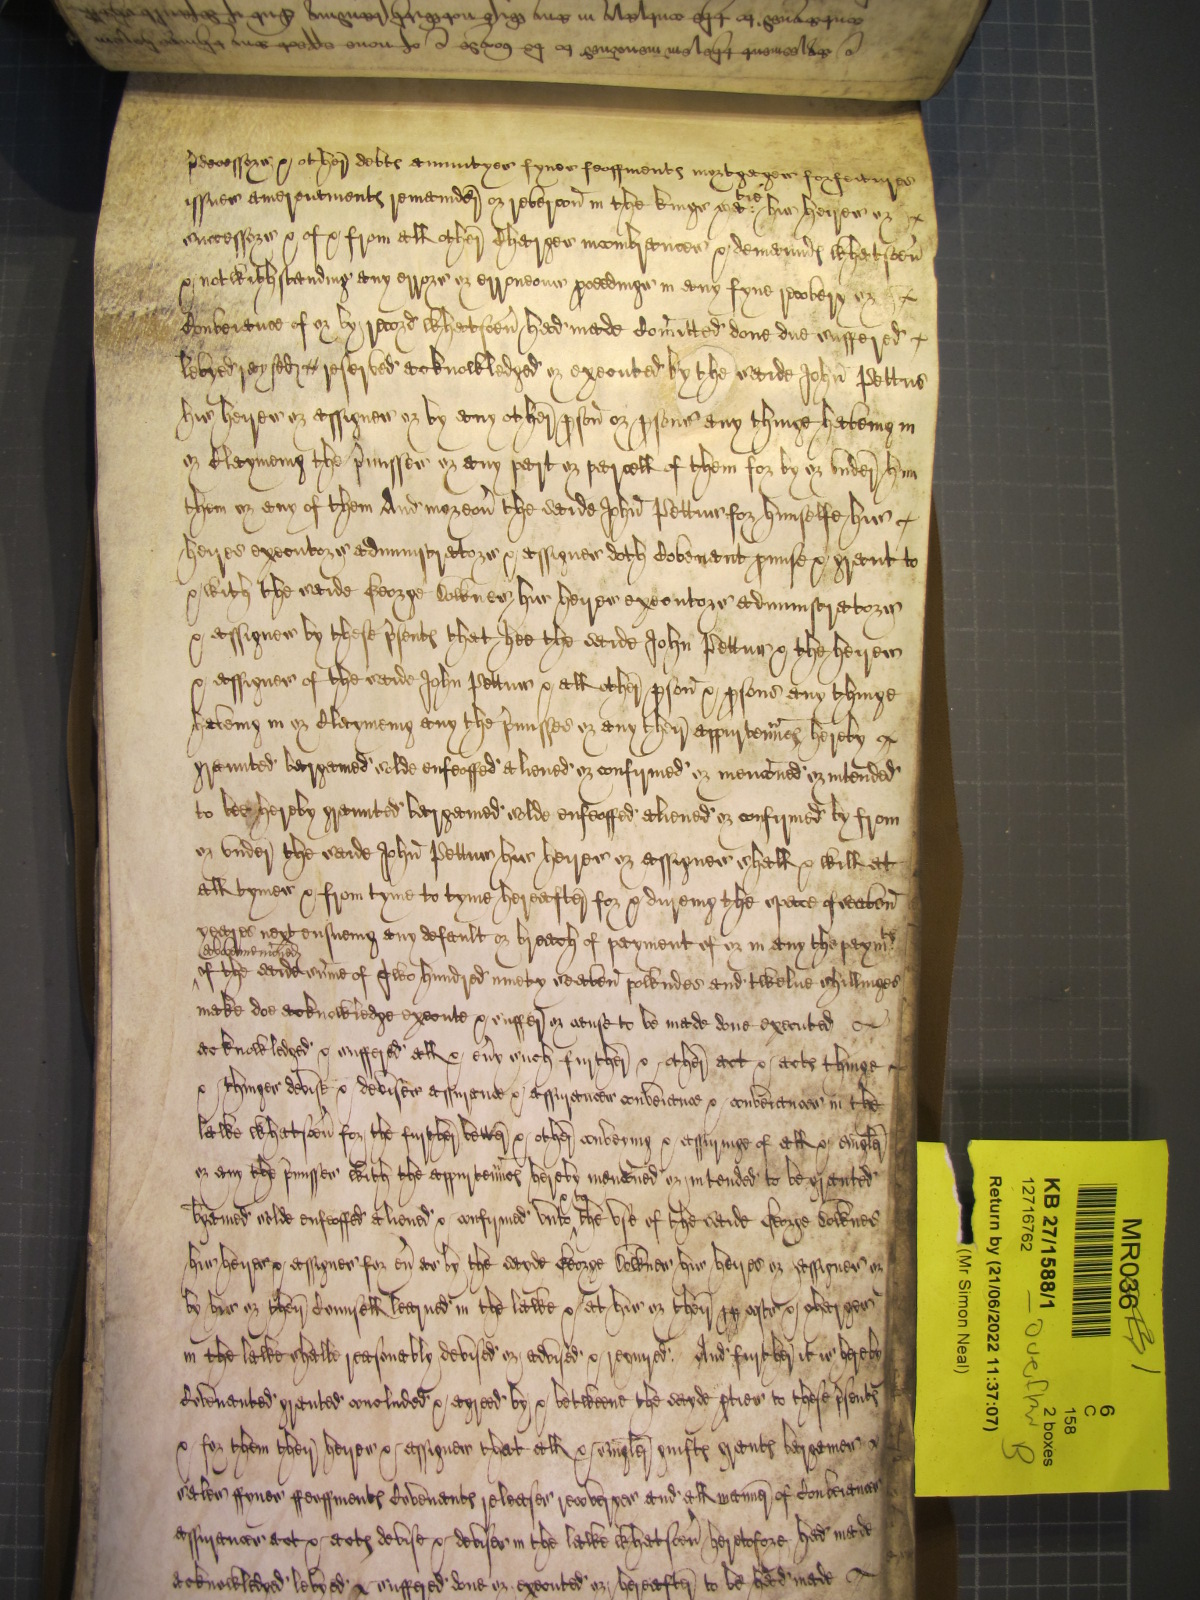 p̱decessors & other debts annuityes fynes feoffments mortgages forfeitures
issues amerciaments remainder or revercon in the kings matie his heires or
successors & of & from all other Charges incombrances & demaunds whatsoeu
& notwithstanding any errors or erroneous pceedings in any fyne recovery or
Conveiance of or by record whatsoeu had made Comitted done due suffered
levyed reserved acknowledged or executed by the saide John Pettus
his heires or assignes or by any other pson or psons any thinge haveing in
or Claymeing the pmisses or any part or parcell of them for by or vnder him
them or any of them And moreou the saide John Pettus for himselfe his
heires executors administrators & assignes doth Covenant pmise & graunt to
& with the saide George Downes his heires executors administrators
& assignes by these psents that hee the saide John Pettus & the heires
& assignes of the saide John Pettus & all other pson & psons any thinge
haveing in or Claymeing any the pmisses or any their appurtennces hereby
graunted bargained solde enfeoffed aliened or confirmed or menconed or intended
to bee hereby graunted bargained solde enfeoffed aliened or confirmed by from
or vnder the saide John Pettus his heires or assignes shall & will at
all tymes & from tyme to tyme hereafter for & dureing the space of seaven
yeares next ensueing any default or breach of payment of or in any the paymts
abovemenconed
of the saide some of Two hundred ninety seaven powndes and twelve shillinges
make doe acknowledge execute & suffer or cause to be made done executed
acknowledged & suffered all & eu̾y such further & other act & acts thinge
& thinges devise & devises assurance & assurances conveiance & conveiances in the
lawe whatsoeu for the further better & other conveying & assuringe of all & singler
or any the pmisses with the appurtennces hereby menconed or intended to be granted
bgained solde enfeoffed aliened & confirmed vnto & to the vse of the saide George Downes
his heires & assignes for eu as by the sayde George Downes his heires or assignes or
by his or their Councell learned in the lawe & at his or their costs & charges
in the lawe shalbe reasonably devised or advised & required. And further it is hereby
Covenanted granted concluded & agreed by & betweene the sayde pties to these psents
& for them their heires & assignes that all & singler guifts grants bargaines
sales ffynes ffeoffments Covenants releases recoveryes and all manner of Conveiances
assurances act & acts devise & devises in the lawe whatsoeu heretofore had made
acknowledged levyed & suffered done or executed or hereafter to be had made
MR036
6
C
158
2 boxes
KB 27/1588/1
12716762
Return by (21/06/2022 11:37:07)
(Mr Simon Neal)